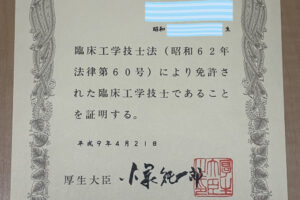 昭和 生
臨床工学技士法(昭和62年
法律第60号)により免許さ
れた臨床工学技士であること
を証明する。
平成9年4月21日
厚生大臣 小泉純一郎